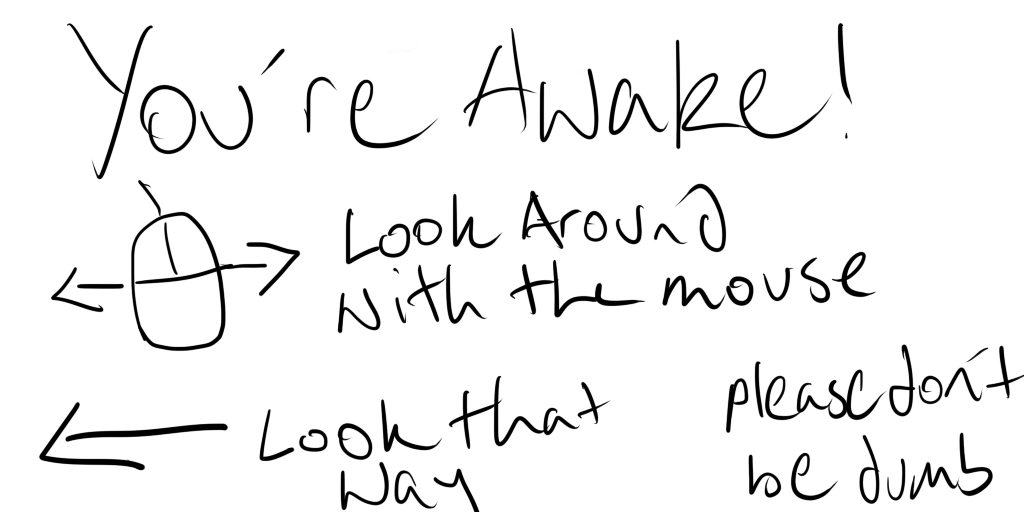 You're Awake!
Look Around
with the mouse
Look that
way
please don't
be dumb